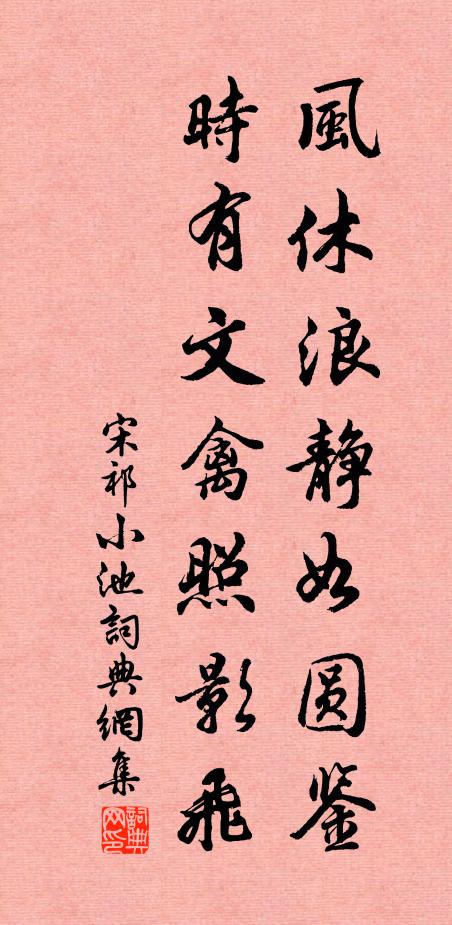 風休浪静如圆鉴
時有文禽照影飛
宋祁小池詞典網集
詞典网印